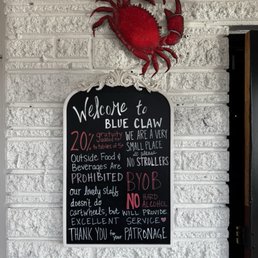 Welcome to
BLUE CLAW
20% gratuity
added to
to tables of 5+
WE ARE A VERY
SMALL PLACE
so please
NO STROLLERS
OUTSIDE FOOD &
BEVERAGES ARE
PROHIBITED
BYOB
NO HARD
ALCOHOL
Our lovely staff
doesn't do
cartwheels, but WILL PROVIDE
EXCELLENT SERVICE
THANK YOU for your PATRONAGE